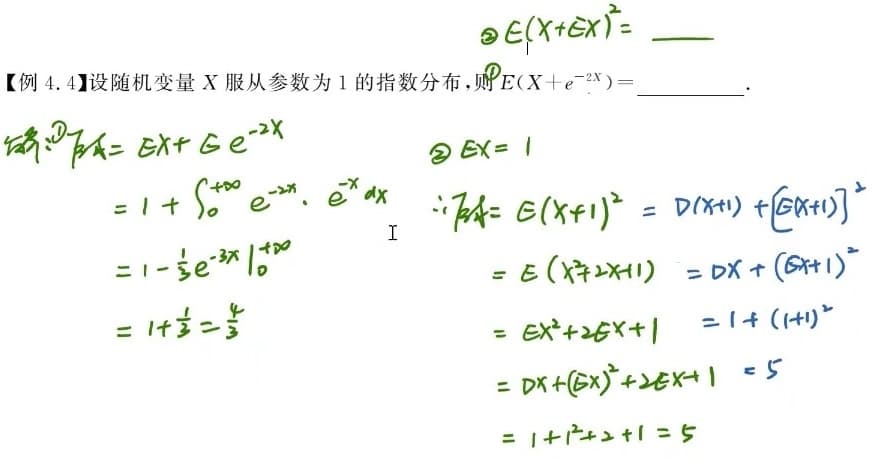 ② E(X+EX)² = ____
【例 4.4】设随机变量 X 服从参数为 1 的指数分布,则① E(X+e⁻²ˣ)=________.
解:① 原式= EX + E e⁻²ˣ
= 1 + ∫₀⁺∞ e⁻²ˣ · e⁻ˣ dx
= 1 - 1/3 e⁻³ˣ |₀⁺∞
= 1 + 1/3 = 4/3
② EX = 1
∴原式= E(X+1)² = D(X+1) + [E(X+1)]²
= E(X²+2X+1) = DX + (EX+1)²
= EX²+2EX+1 = 1 + (1+1)²
= DX+(EX)²+2EX+1 = 5
= 1+1²+2+1 = 5